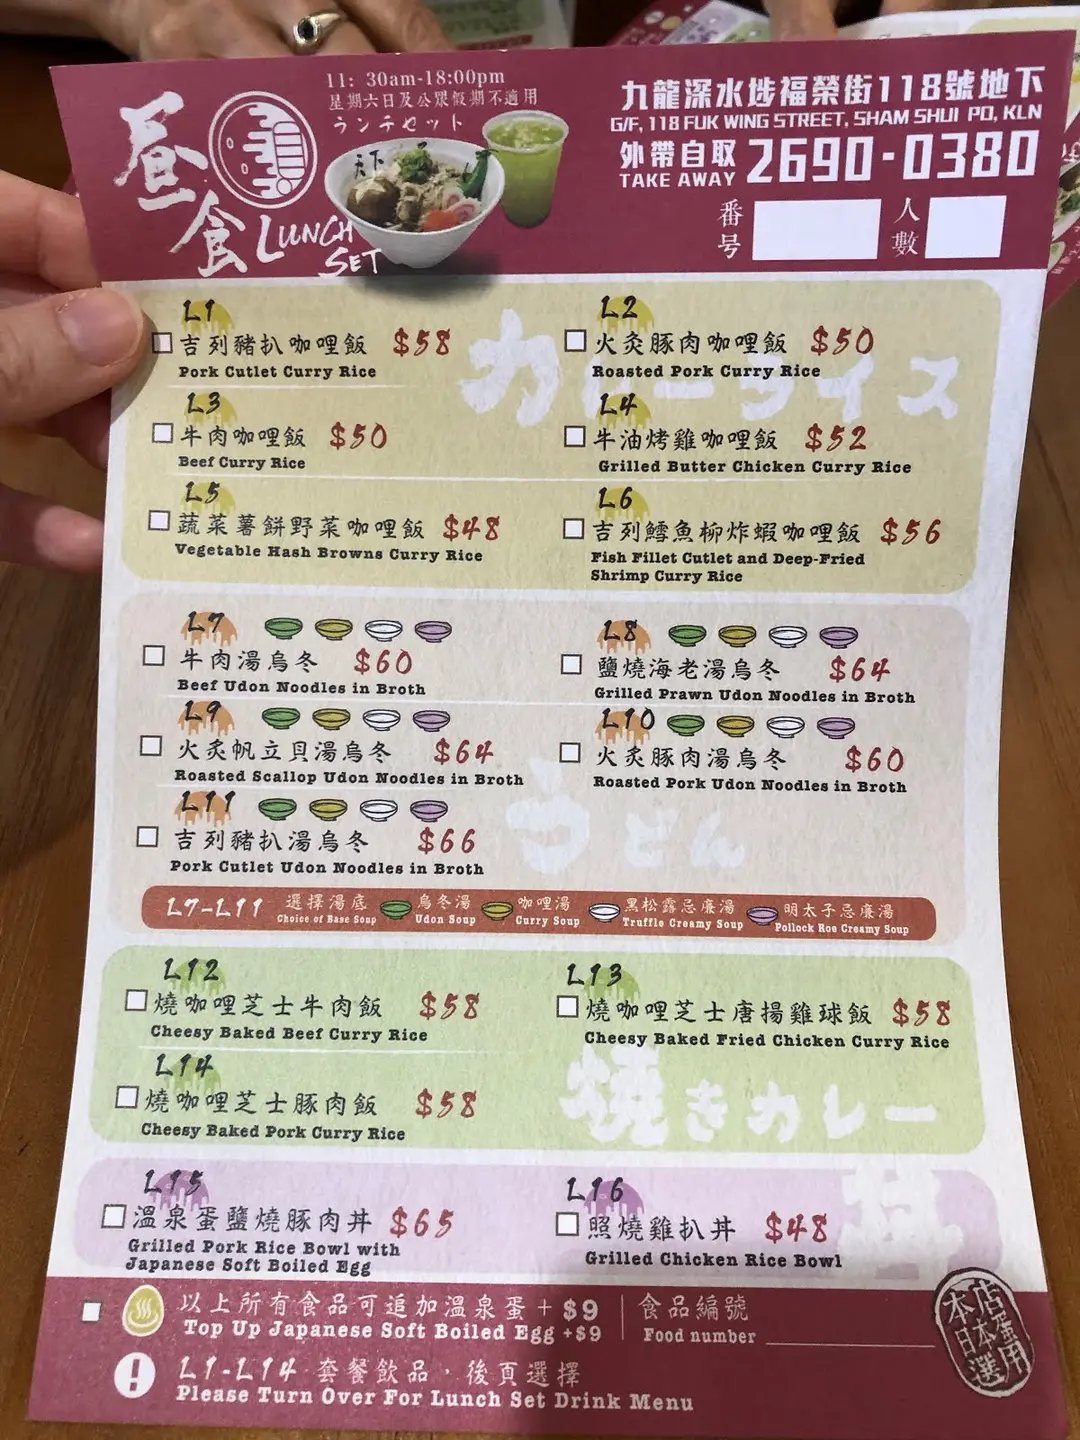 11: 30am-18:00pm
星期六日及公眾假期不適用
ランチセット
昼食 LUNCH SET
天下
九龍深水埗福榮街118號地下
G/F, 118 FUK WING STREET, SHAM SHUI PO, KLN
外帶自取 TAKE AWAY 2690-0380
番号
人數
カレーライス
L1
吉列豬扒咖哩飯 $58
Pork Cutlet Curry Rice
L2
火灸豚肉咖哩飯 $50
Roasted Pork Curry Rice
L3
牛肉咖哩飯 $50
Beef Curry Rice
L4
牛油烤雞咖哩飯 $52
Grilled Butter Chicken Curry Rice
L5
蔬菜薯餅野菜咖哩飯 $48
Vegetable Hash Browns Curry Rice
L6
吉列鱈魚柳炸蝦咖哩飯 $56
Fish Fillet Cutlet and Deep-Fried
Shrimp Curry Rice
うどん
L7
牛肉湯烏冬 $60
Beef Udon Noodles in Broth
L8
鹽燒海老湯烏冬 $64
Grilled Prawn Udon Noodles in Broth
L9
火炙帆立貝湯烏冬 $64
Roasted Scallop Udon Noodles in Broth
L10
火炙豚肉湯烏冬 $60
Roasted Pork Udon Noodles in Broth
L11
吉列豬扒湯烏冬 $66
Pork Cutlet Udon Noodles in Broth
L7-L11 選擇湯底 烏冬湯 咖哩湯 黑松露忌廉湯 明太子忌廉湯
Choice of Base Soup Udon Soup Curry Soup Truffle Creamy Soup Pollock Roe Creamy Soup
焼きカレー
L12
燒咖哩芝士牛肉飯 $58
Cheesy Baked Beef Curry Rice
L13
燒咖哩芝士唐揚雞球飯 $58
Cheesy Baked Fried Chicken Curry Rice
L14
燒咖哩芝士豚肉飯 $58
Cheesy Baked Pork Curry Rice
丼
L15
溫泉蛋鹽燒豚肉丼 $65
Grilled Pork Rice Bowl with
Japanese Soft Boiled Egg
L16
照燒雞扒丼 $48
Grilled Chicken Rice Bowl
以上所有食品可追加溫泉蛋 + $9
Top Up Japanese Soft Boiled Egg +$9
食品編號
Food number
L1-L14 套餐飲品，後頁選擇
Please Turn Over For Lunch Set Drink Menu
本店
日本蛋
選用